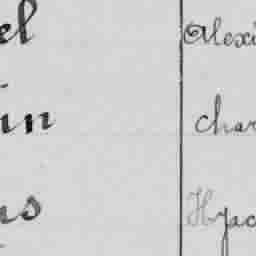 el Alexi
in Char
us Hyac